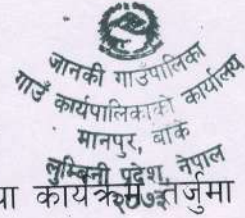 जानकी गाउँपालिका
गाउँ कार्यपालिकाको कार्यालय
मानपुर, बाँके
लुम्बिनी प्रदेश, नेपाल
२०७३
या कार्यक्रम तर्जुमा